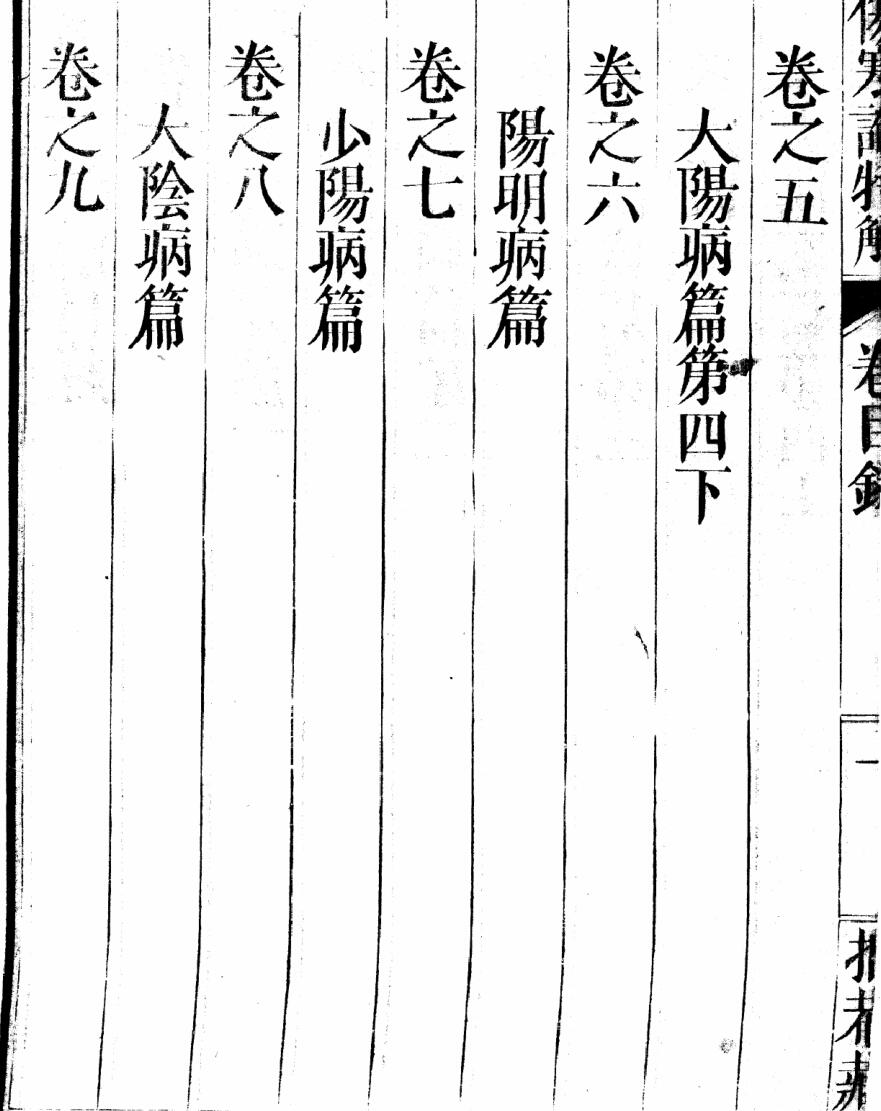 傷寒論特解
卷目錄
一
卷之五
大陽病篇第四下
卷之六
陽明病篇
卷之七
少陽病篇
卷之八
大陰病篇
卷之九